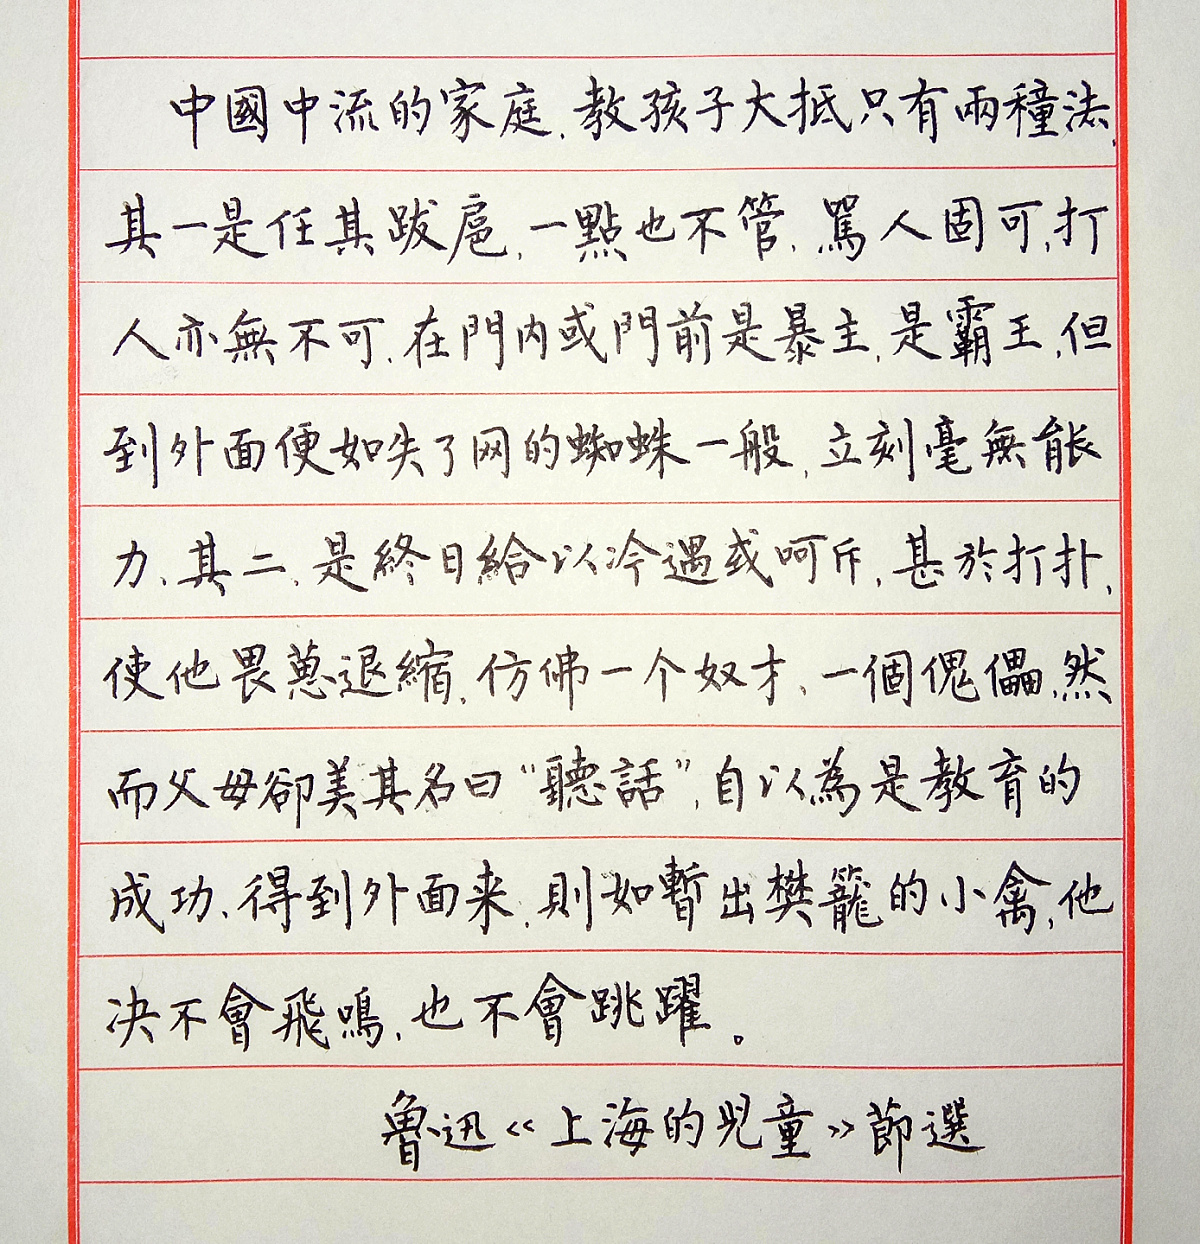 中國中流的家庭,教孩子大抵只有兩種法,
其一是任其跋扈,一點也不管,罵人固可,打
人亦無不可,在門內或門前是暴主,是霸王,但
到外面便如失了网的蜘蛛一般,立刻毫無能
力、其二,是終日給以冷遇或呵斥,甚於打扑,
使他畏葸退縮,仿佛一个奴才、一個傀儡,然
而父母卻美其名曰“聽話”,自以為是教育的
成功、得到外面来,則如暫出樊籠的小禽,他
决不會飛鳴,也不會跳躍。
魯迅《上海的兒童》節選